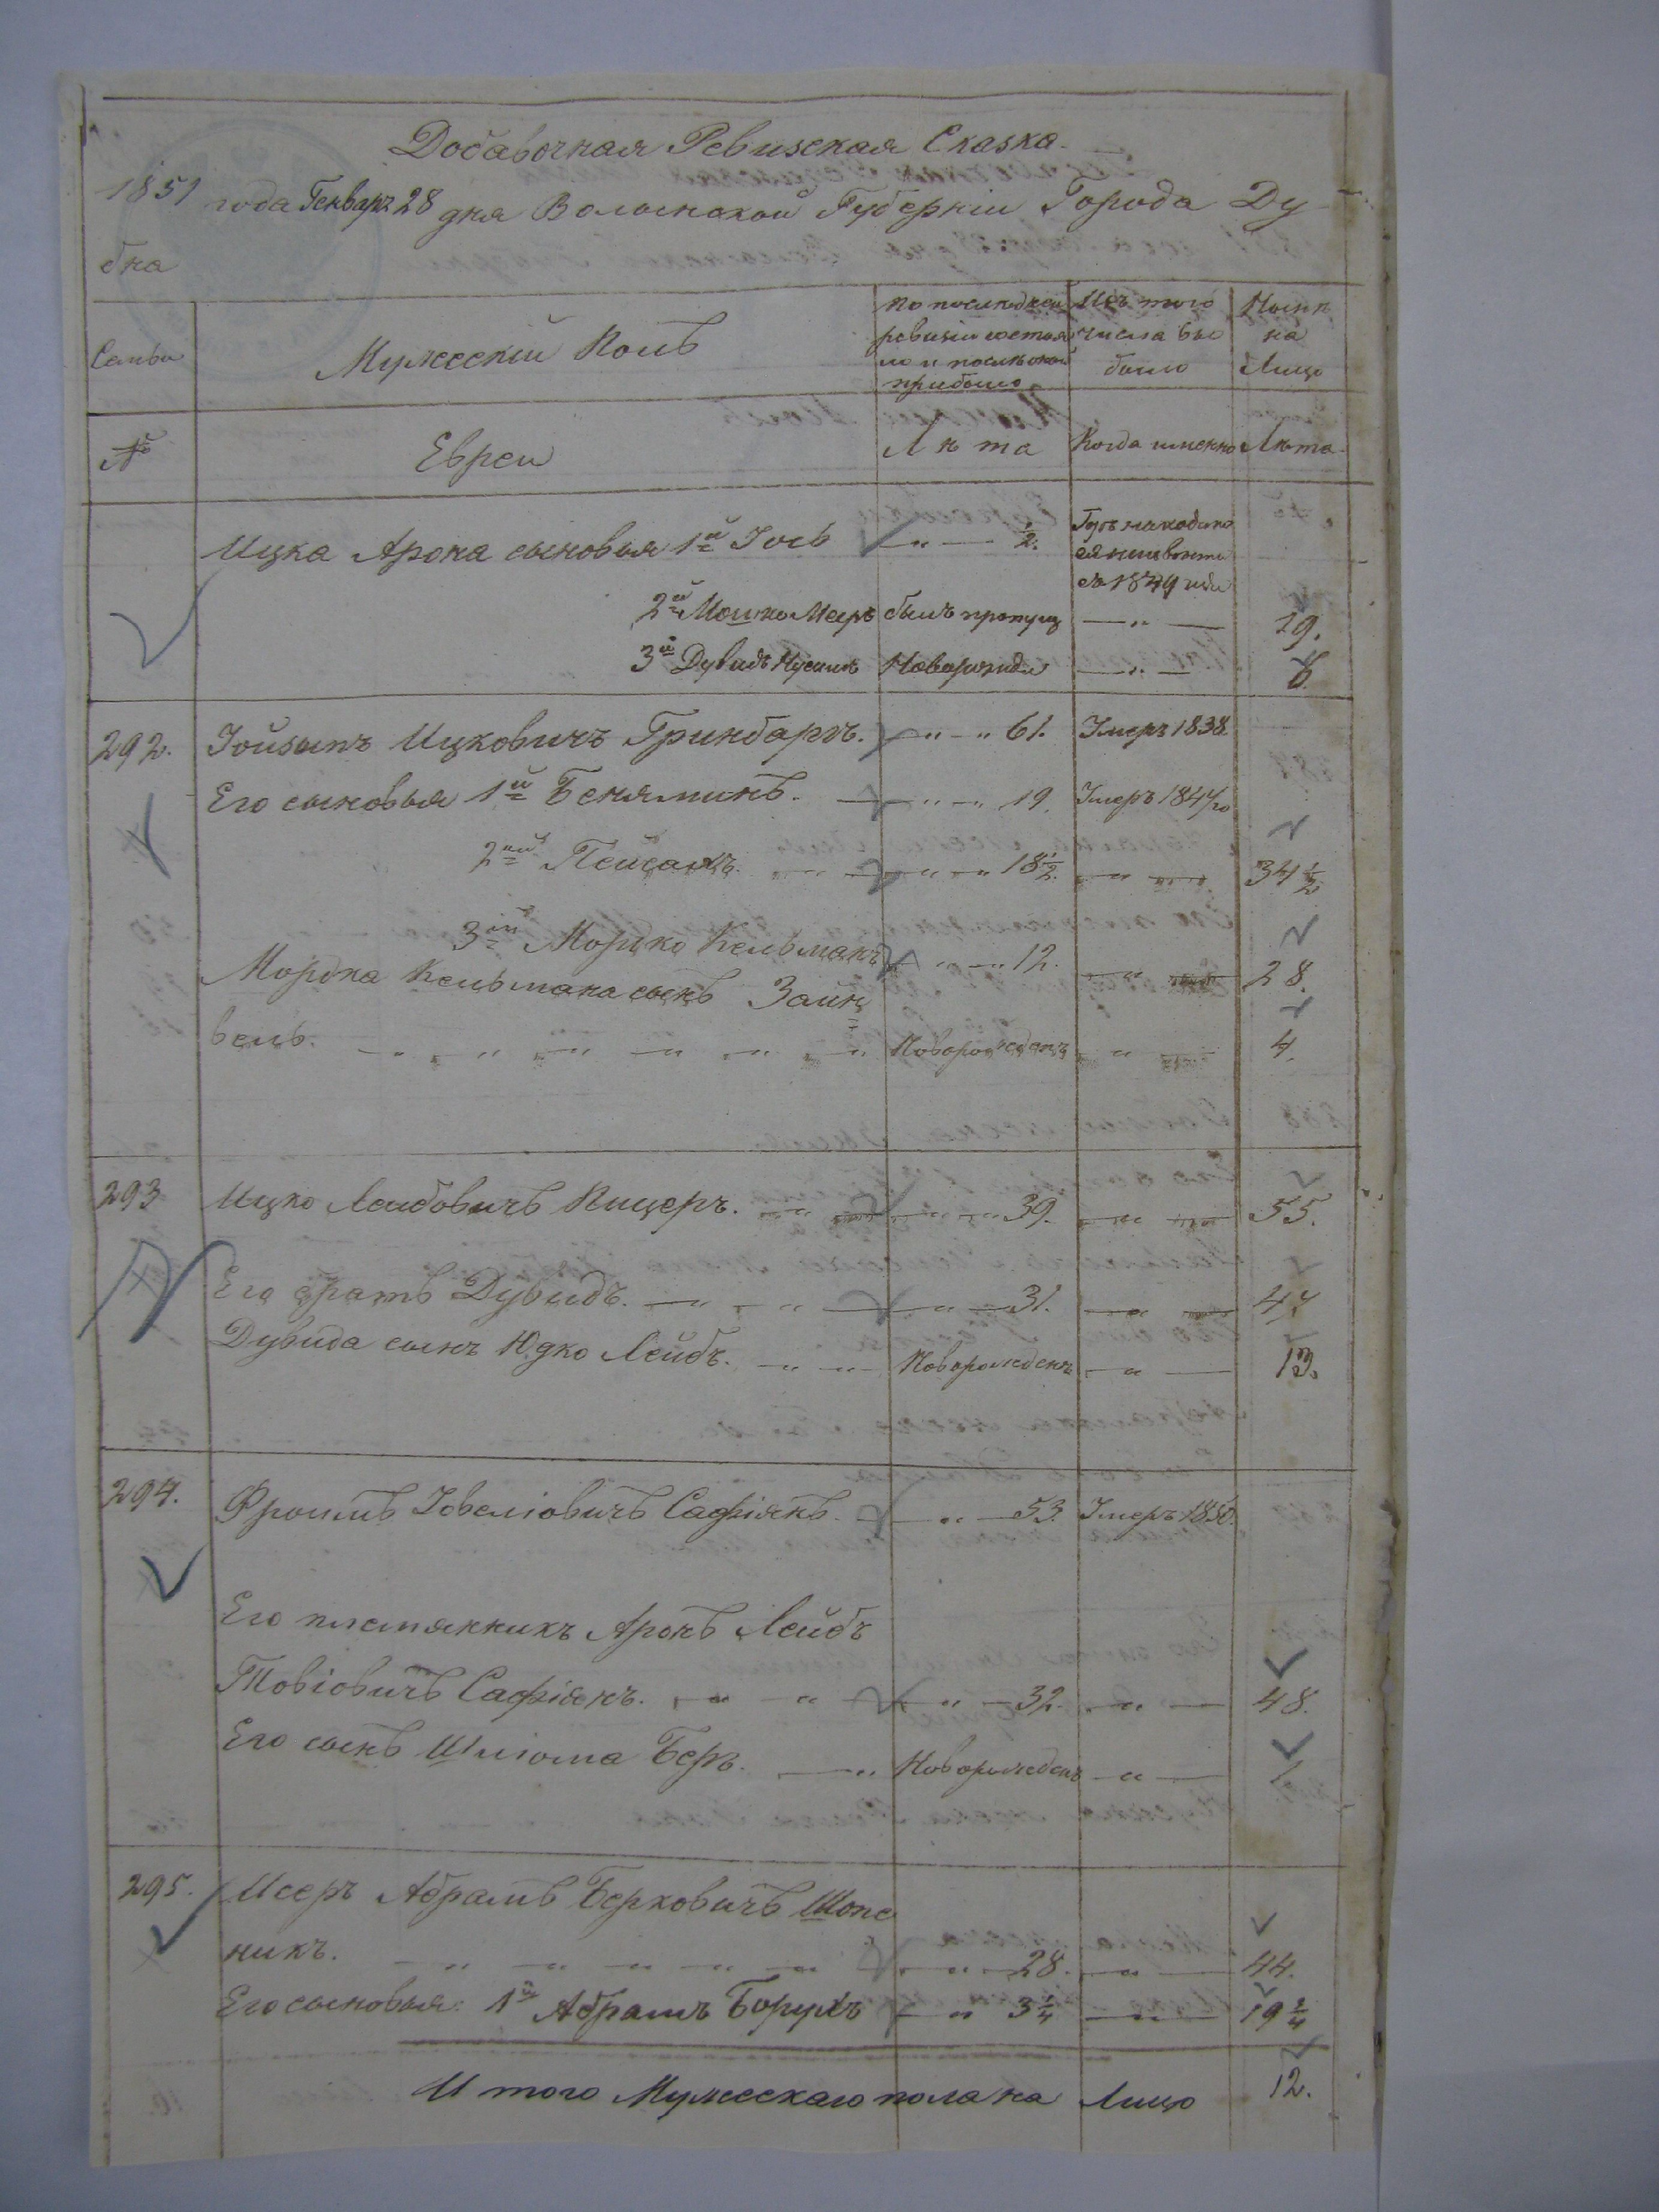 Добавочная Ревизская Сказка.
1851 года Генваря 28 дня Волынской Губерніи Города Ду
бна
Семьи
Мужескій Полъ
По последней
ревизіи состоя
ло и после оной
прибыло
Изъ того
числа вы
было
Ныне
на
Лицо
№
Евреи
Лѣта
Когда именно
Лѣта
Ицка Арона сыновья 1й Іось — " — 1/2.
с 1849 года
2й Мошко Мееръ былъ пропущ — " — 19.
3й Дувидъ Нусимъ Новорожде — " — 6.
292. Іойзипъ Ицковичъ Гринбаргъ. — " — " 61. Умеръ 1838.
Его сыновья 1й Беняминъ. — " — " 19. Умеръ 184
2ой Пейсахъ. — " — " 18 1/2. — " — 34 1/2
3ій Мордко Кельманъ — " — " 12. — " — 28.
Мордка Кельмана сынъ Зайн
вель. — " — " — Новорожденъ — " — 4.
293 Ицко Лейбовичъ Кицеръ. — " — " 39. — " — 55.
Его братъ Дувидъ. — " — " 31. — " — 47.
Дувида сынъ Юдко Лейбъ. — " — Новорожденъ — " — 13.
294. Фроимъ Іовеліовичъ Сафіянъ. — " — 53. Умеръ 1850.
Его племянникъ Аронъ Лейбъ
Товіовичъ Сафіянъ. — " — " — 32. — " — 48.
Его сынъ Шліома Беръ. — " Новорожденъ — " —
295. Мееръ Абрамъ Берковичъ Шопс
никъ. — " — " — " — 28. — " — 44.
Его сыновья: 1й Абрамъ Борухъ — " 3 1/4 — " — 19 1/4
И того Мужескаго пола на Лицо 12.